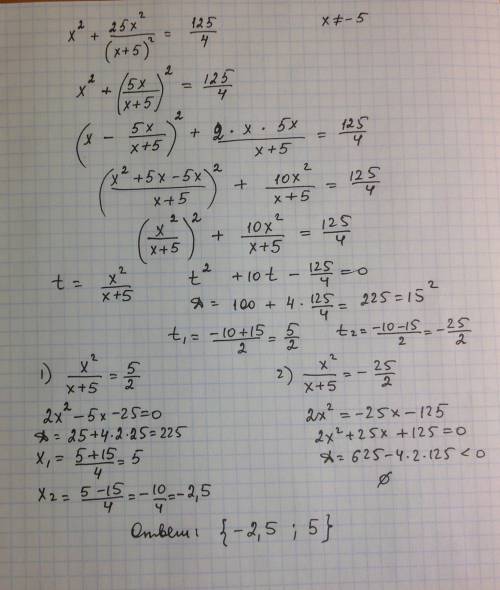 x² + 25x²/(x+5)² = 125/4    x ≠ -5
x² + (5x/(x+5))² = 125/4
(x - 5x/(x+5))² + 2·x·5x/(x+5) = 125/4
((x²+5x-5x)/(x+5))² + 10x²/(x+5) = 125/4
(x²/(x+5))² + 10x²/(x+5) = 125/4
t = x²/(x+5)    t² + 10t - 125/4 = 0
D = 100 + 4·125/4 = 225 = 15²
t₁ = (-10+15)/2 = 5/2    t₂ = (-10-15)/2 = -25/2
1) x²/(x+5) = 5/2
2x² - 5x - 25 = 0
D = 25+4·2·25 = 225
x₁ = (5+15)/4 = 5
x₂ = (5-15)/4 = -10/4 = -2,5
2) x²/(x+5) = -25/2
2x² = -25x - 125
2x² + 25x + 125 = 0
D = 625 - 4·2·125 < 0
∅
Ответ: {-2,5 ; 5}